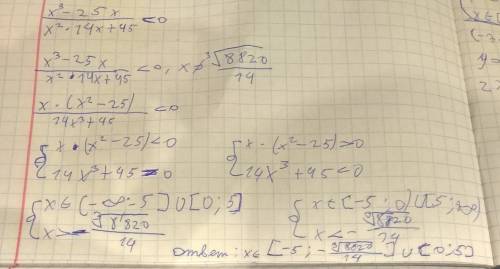 x³-25x / x²·14x+45 <0
x³-25x / x²·14x+45 <0, x≠ ³√8820 / 14
x·(x²-25) / 14x³+45 <0
{ x·(x²-25)<0 { x-(x²-25)>0
14x³+45>0 14x³+45<0
{ x∈(-∞-5]∪[0;5] { x∈[-5;0)∪[5;+∞)
x>-³√8820 / 14 x<-³√8820 / 14
Ответ: x∈[-5;-³√8820 / 14]∪[0;5]